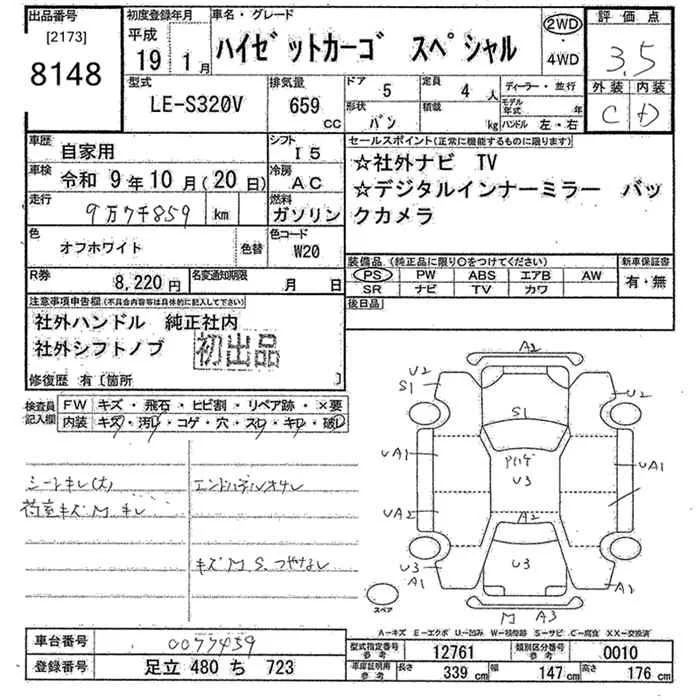 出品番号 初度登録年月 車名・グレード 評価点
[2173] 平成 ハイゼットカーゴ スペシャル 2WD ・ 4WD 3.5
8148 19 1月
外装 内装
C D
型式 排気量 ドア 定員 ディーラー・並行
LE-S320V 659 CC 5 4人 モデル年式 年
形状 積載 ハンドル 左・右
バン kg
車歴 自家用 シフト I5
車検 令和 9年10月(20日) 冷房 AC
走行 9万7千859 km 燃料 ガソリン
色 オフホワイト 色替 色コード W20
R券 8,220円 名変通知期限 月 日
セールスポイント(正常に機能するものに限ります)
☆社外ナビ TV
☆デジタルインナーミラー バックカメラ
装備品(純正品に限り○をつけてください) 新車保証書
PS PW ABS エアB AW 有・無
SR ナビ TV カワ
後日品
注意事項申告欄(不具合内容等は具体的に記入して下さい)
社外ハンドル 純正社内
社外シフトノブ
初出品
修復歴 有〔箇所 〕
検査員記入欄 FW キズ・飛石・ヒビ割・リペア跡・×要
内装 キズ・汚レ・コゲ・穴・スレ・キレ・破レ
シートキレ(大)
荷室キズ M キレ
キズ M.S.つやなし
A2
U2 S1
U2
S1
UA1 UA1
U3
UA2 A2
U3 U3
A1 A2
M A3
スペア
A-キズ E-エクボ U-凹み W-補修跡 S-サビ C-腐食 XX-交換済
車台番号 0077459
登録番号 足立 480 ち 723
型式指定番号 参考 12761 類別区分番号 参考 0010
車庫証明用 参考 長さ 339 cm 幅 147 cm 高さ 176 cm